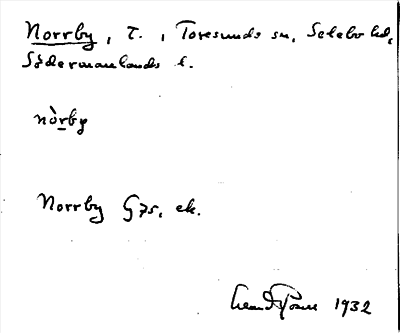 Norrby, T., Toresunds sn, Selebo hd,
Södermanlands l.
nòrby
Norrby G 75, ek.
1932